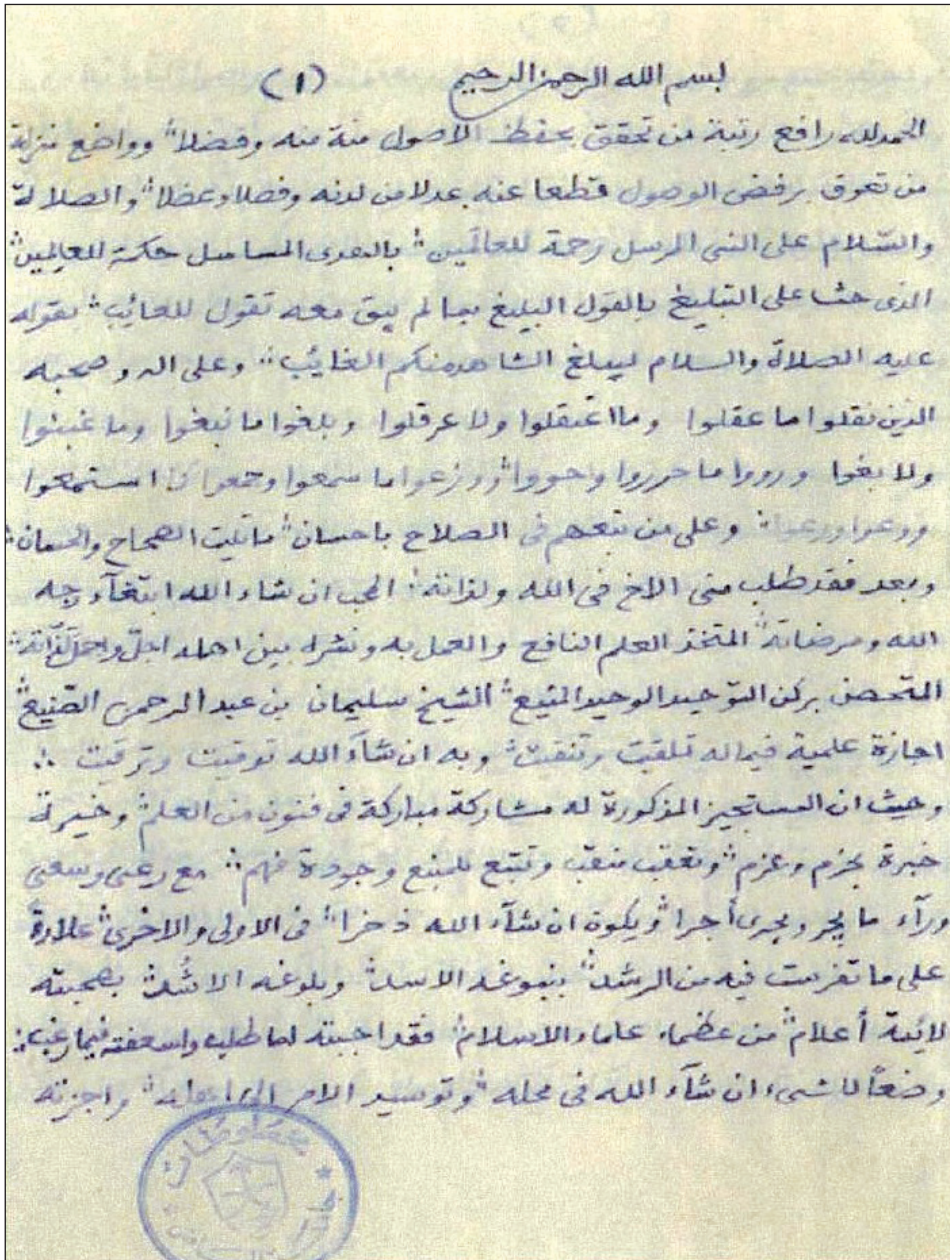 بسم الله الرحمن الرحيم (1)
الحمد لله رافع رتبة من تحقق بحفظ الاصول منة منه وفضلا" وواضع منزلة
من تعوق برفض الوصول قطعا عنه عدلا من لدنه وفصلا وعضلا" والصلاة
والسّلام على النبى المرسل رحمة للعالَمين" بالهدى المسلسل حكمة للعالِمين"
الذى حث على التبليغ بالقول البليغ بما لم يبق معه تقول للعائب" بقوله
عليه الصلاة والسلام ليبلغ الشاهد منكم الغايب" وعلى اله وصحبه
الذين نقلوا ما عقلوا وما اعتقلوا ولا عرقلوا وبلغوا ما نبغوا وما غبنوا
ولا بغوا ورووا ما حرروا وحووا" ووزعوا ما سمعوا وجمعوا استمعوا
ووعوا ورعوا" وعلى من تبعهم فى الصلاح باحسان" ما تليت الصحاح والحسان"
وبعد فقد طلب منى الاخ فى الله ولذاته" المحب ان شاء الله ابتغآء وجه
الله ومرضاته" المتخذ العلم النافع والعمل به ونشره بين اهله اجلّ واجمل لذّاته"
المتحصن بركن التوحيد الوحيد المنيع" الشيخ سليمان بن عبد الرحمن الصّنيع"
اجازة علمية فيما له تلقيت وتنقيت" وبه ان شآء الله توقيت وترقيت"
وحيث ان المستجيز المذكورة له مشاركة مباركة فى فنون من العلم" وخيرة
خبرة بحزم وعزم" وتعقب منقب وتتبع للمنبع وجودة فهم" مع رعى وسعى
ورآء ما يجر ويجرى أجرا" ويكون ان شآء الله ذخرا" فى الاولى والاخرى" علاوة
على ما تفرست فيه من الرشد" بنبوغه الاسد" وبلوغه الاشُد" بصحبته
لائمة أعلام" من عظماء علماء الاسلام" فقد اجبته لما طلب واسعفته فيما رغب"
وضعاً للشىء ان شآء الله فى محله" وتوسيد الامر الى اهله" واجزته
مخطوطات